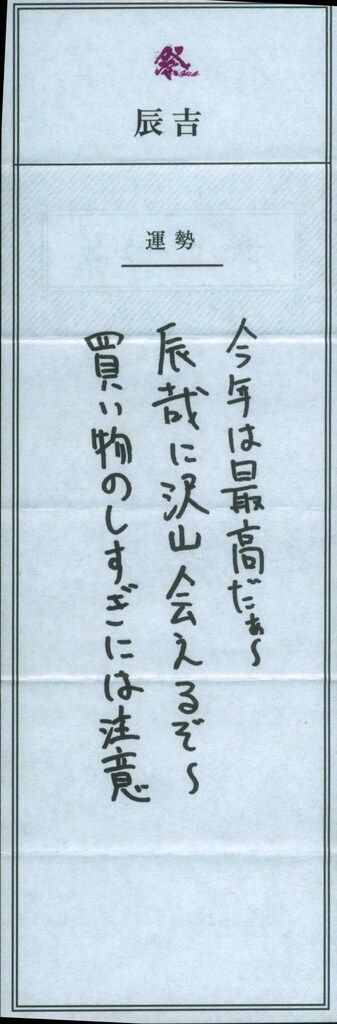 祭
辰吉
運勢
今年は最高だぁ〜
辰哉に沢山会えるぞ〜
買い物のしすぎには注意